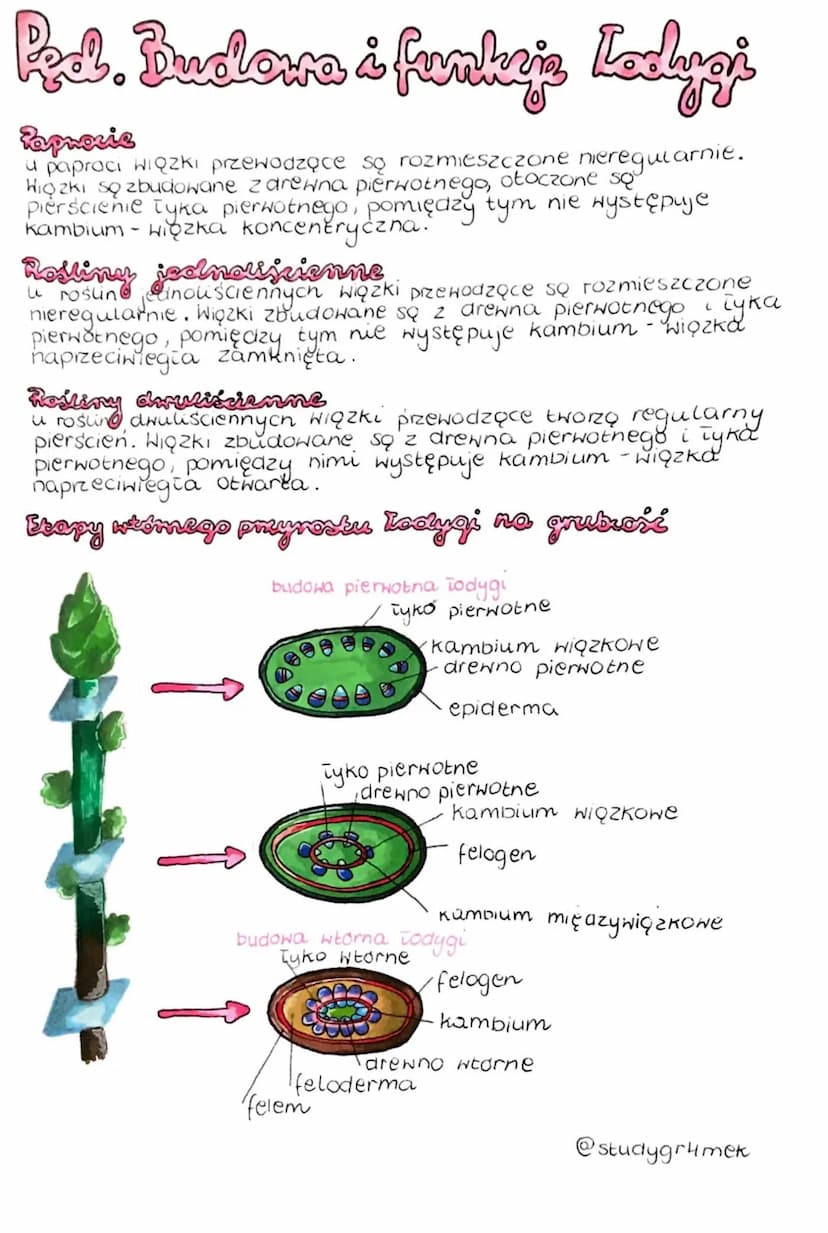 Pęd. Budowa i funkcje łodygi
Paprocie
u paproci wiązki przewodzące są rozmieszczone nieregularnie.
Wiązki są zbudowane z drewna pierwotnego, otoczone są
pierścienie łyka pierwotnego, pomiędzy tym nie występuje
kambium - wiązka koncentryczna.
Rośliny jednoliścienne
u roślin jednoliściennych wiązki przewodzące są rozmieszczone
nieregularnie. Wiązki zbudowane są z drewna pierwotnego i łyka
pierwotnego, pomiędzy tym nie występuje kambium - wiązka
naprzeciwległa zamknięta.
Rośliny dwuliścienne
u roślin dwuliściennych wiązki przewodzące tworzą regularny
pierścień. Wiązki zbudowane są z drewna pierwotnego i łyka
pierwotnego, pomiędzy nimi występuje kambium - wiązka
naprzeciwległa otwarta.
Etapy wtórnego przyrostu łodygi na grubość
budowa pierwotna łodygi
łyko pierwotne
kambium wiązkowe
drewno pierwotne
epiderma
łyko pierwotne
drewno pierwotne
kambium wiązkowe
felogen
kambium międzywiązkowe
budowa wtórna łodygi
łyko wtórne
felogen
kambium
drewno wtórne
feloderma
felem
@studygr4mek